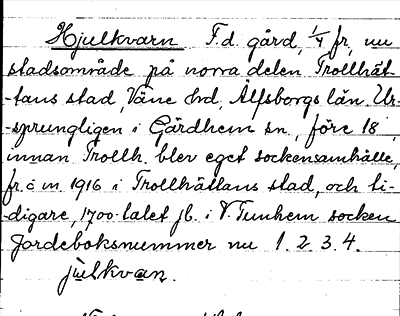 Hjulkvarn F.d. gård, 1/4 fr, nu
stadsområde på norra delen Trollhät-
-tans stad, Väne hrd, Älfsborgs län. Ur-
-sprungligen i Gärdhem sn, före 18 ,
innan Trollh. blev eget sockensamhälle,
fr. o m 1916 i Trollhättans stad, och ti-
-digare, 1700-talet jb. i V. Tunhem socken
Jordeboksnummer nu 1. 2. 3. 4.
julkvan.